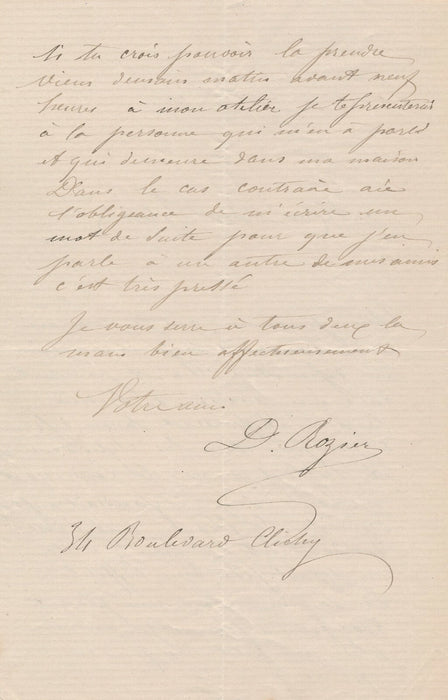 Si tu crois pouvoir la prendre
viens demain matin avant neuf
heures à mon atelier je te presenterai
à la personne qui m'en à parlé
et qui demeure dans ma maison
Dans le cas contraire aie
l'obligeance de m'écrire un
mot de suite pour que j'en
parle à un autre de mes amis
c'est très pressé
Je vous serre à tous deux la
main bien affectueusement
Votre ami
D. Rozier
34 Boulevard Clichy